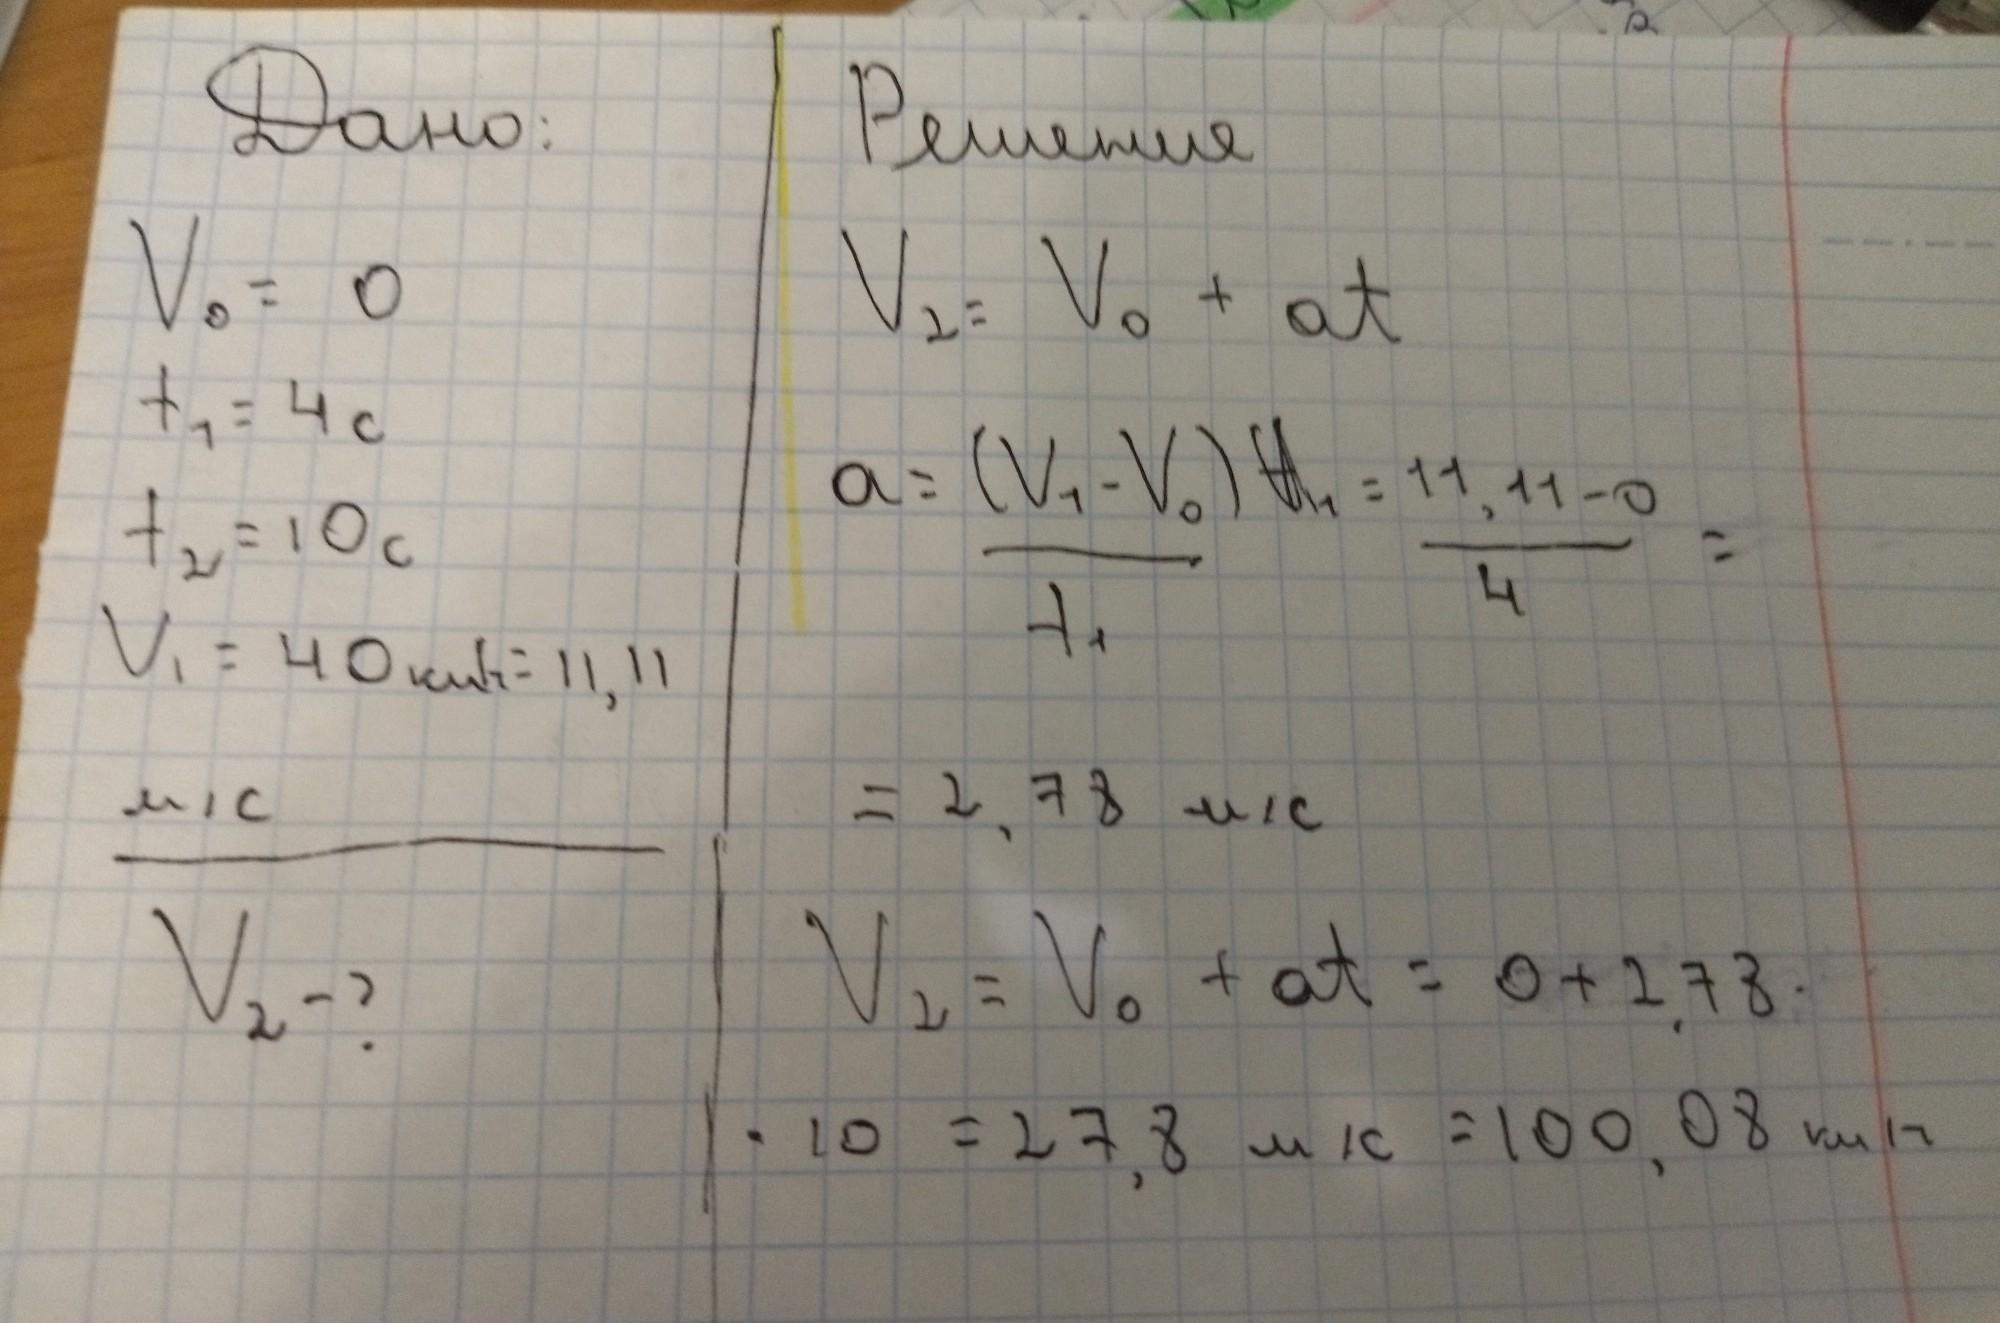 Дано:
V₀ = 0
t₁ = 4с
t₂ = 10с
V₁ = 40км/ч = 11,11
м/с
V₂ - ?
Решение
V₂ = V₀ + at
a = (V₁ - V₀) = 11,11 - 0 =
t₁ 4
= 2,78 м/с
V₂ = V₀ + at = 0 + 2,78 ·
· 10 = 27,8 м/с = 100,08 км/ч